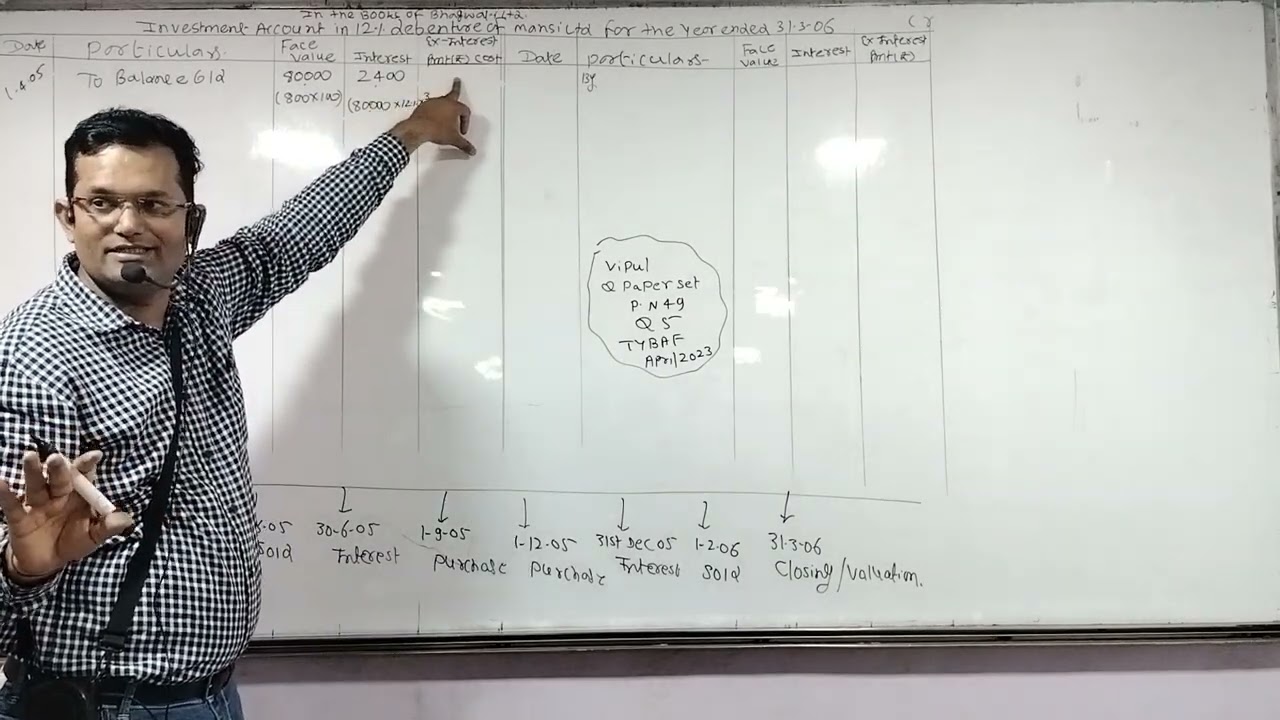 In the Books of Bhagwat Ltd.
Investment Account in 12% debenture of mansi Ltd for the year ended 31-3-06
Date Particulars. Face Value Interest Ex-Interest Amt(₹) Cost Date particulars- Face Value Interest Ex Interest Amt(₹)
1.4.05 To Balance b/d 80000 2400 By.
(800x100) (80000x12%
Vipul
Q Paper set
P.N 49
Q 5
TYBAF
April/2023
30-6-05 1-9-05 1-12-05 31st Dec 05 1-2-06 31-3-06
Sold Interest purchase purchase Interest Sold Closing/valuation.